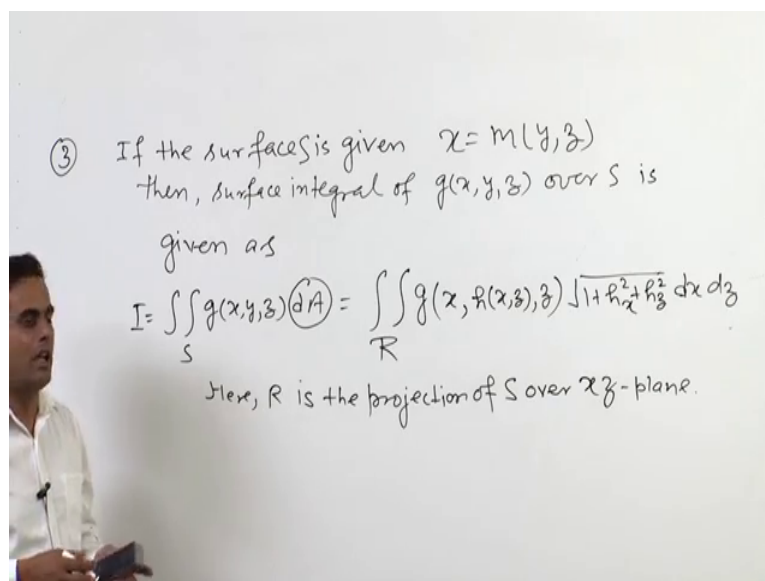 ③ If the surface S is given x = m(y,z)
then, surface integral of g(x,y,z) over S is
given as
I = ∬_S g(x,y,z) dA = ∬_R g(x, h(x,z), z) √(1+h_x^2+h_z^2) dx dz
Here, R is the projection of S over xz-plane.